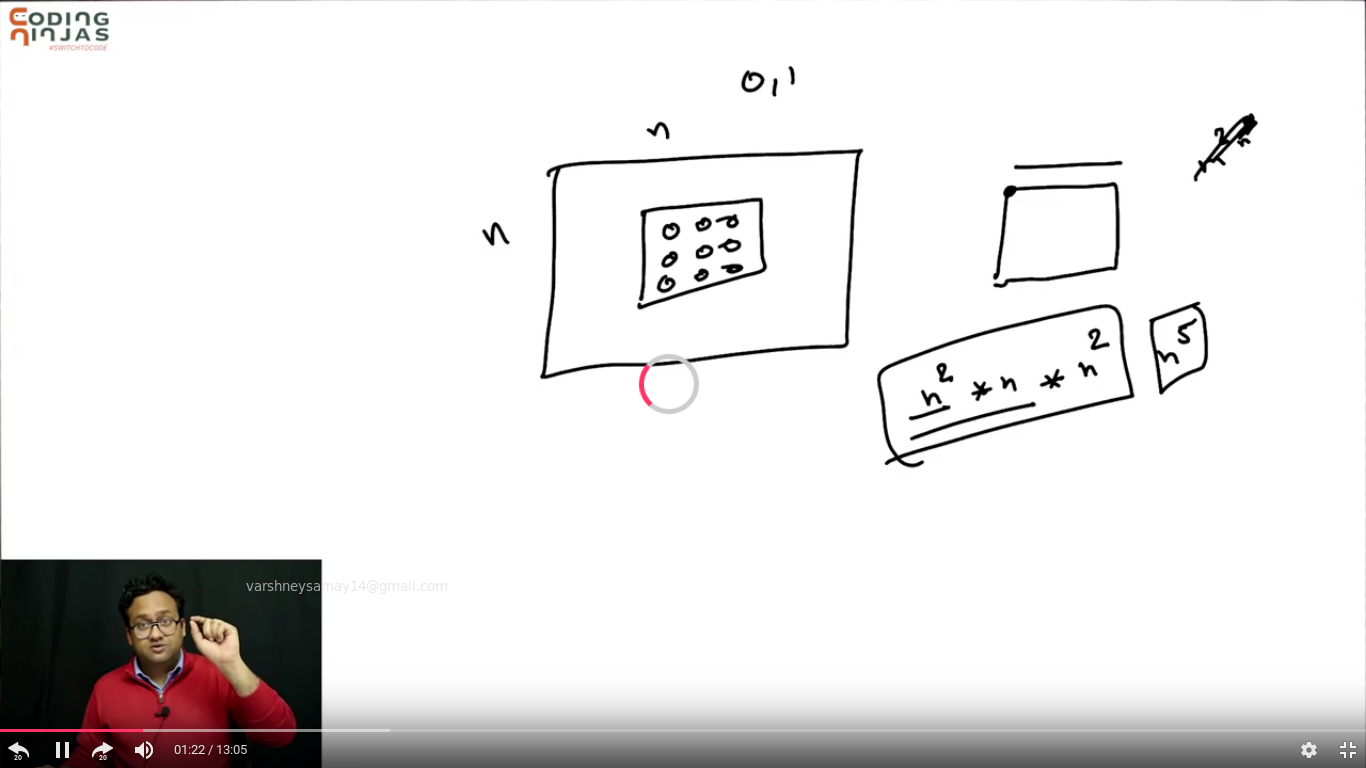 CODING
NINJAS
#SWITCHTOCODE
0,1
n
n
0 0 0
0 0 0
0 0 0
n² * n * n²
n⁵
varshneysamay14@gmail.com
20
20
01:22 / 13:05